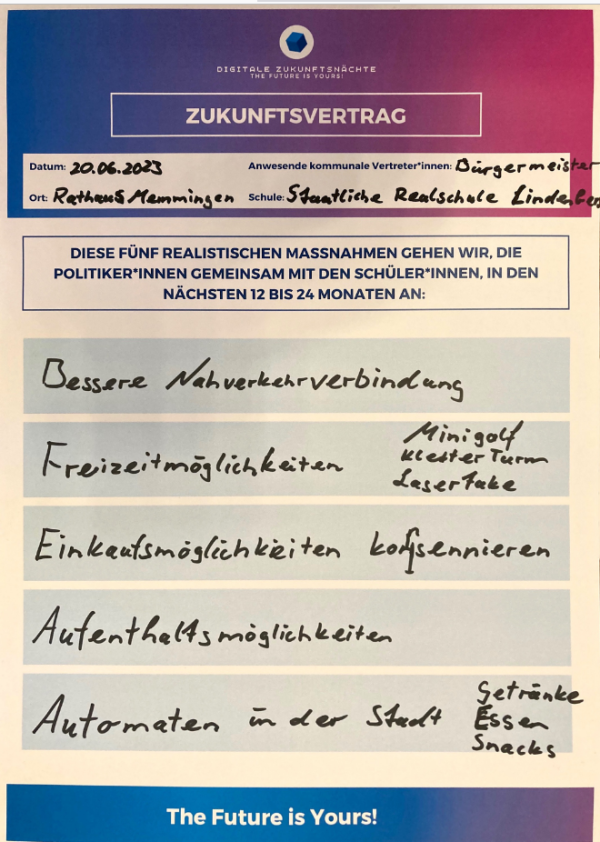 DIGITALE ZUKUNFTSNÄCHTE
THE FUTURE IS YOURS!
ZUKUNFTSVERTRAG
Datum: 20.06.2023 Anwesende kommunale Vertreter*innen: Bürgermeister
Ort: Rathaus Memmingen Schule: Staatliche Realschule Lindenberg
DIESE FÜNF REALISTISCHEN MASSNAHMEN GEHEN WIR, DIE
POLITIKER*INNEN GEMEINSAM MIT DEN SCHÜLER*INNEN, IN DEN
NÄCHSTEN 12 BIS 24 MONATEN AN:
Bessere Nahverkehrverbindung
Freizeitmöglichkeiten
Minigolf
Kletter Turm
Lasertake
Einkaufsmöglichkeiten
Aufenthaltsmöglichkeiten
Automaten in der Stadt
Getränke
Essen
Snacks
The Future is Yours!